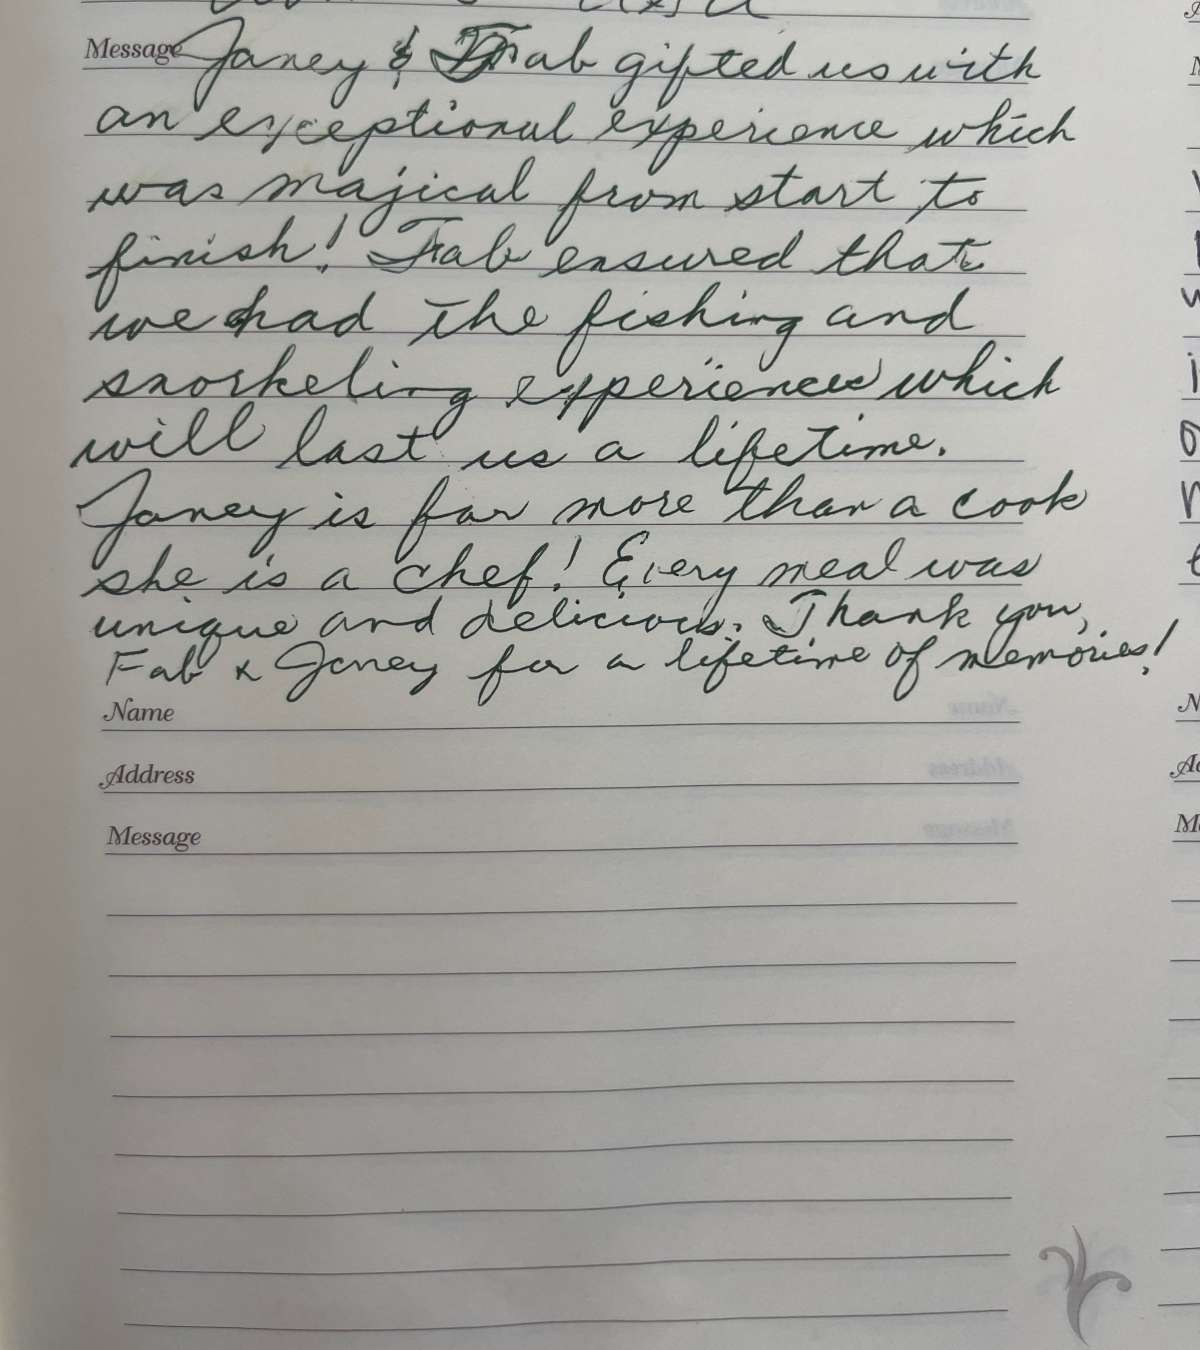 Message Janey & Fab gifted us with
an exceptional experience which
was majical from start to
finish! Fab ensured that
we had the fishing and
snorkeling experiences which
will last us a lifetime.
Janey is far more than a cook
she is a chef! Every meal was
unique and delicious. Thank you,
Fab & Janey for a lifetime of memories!
Name
Address
Message